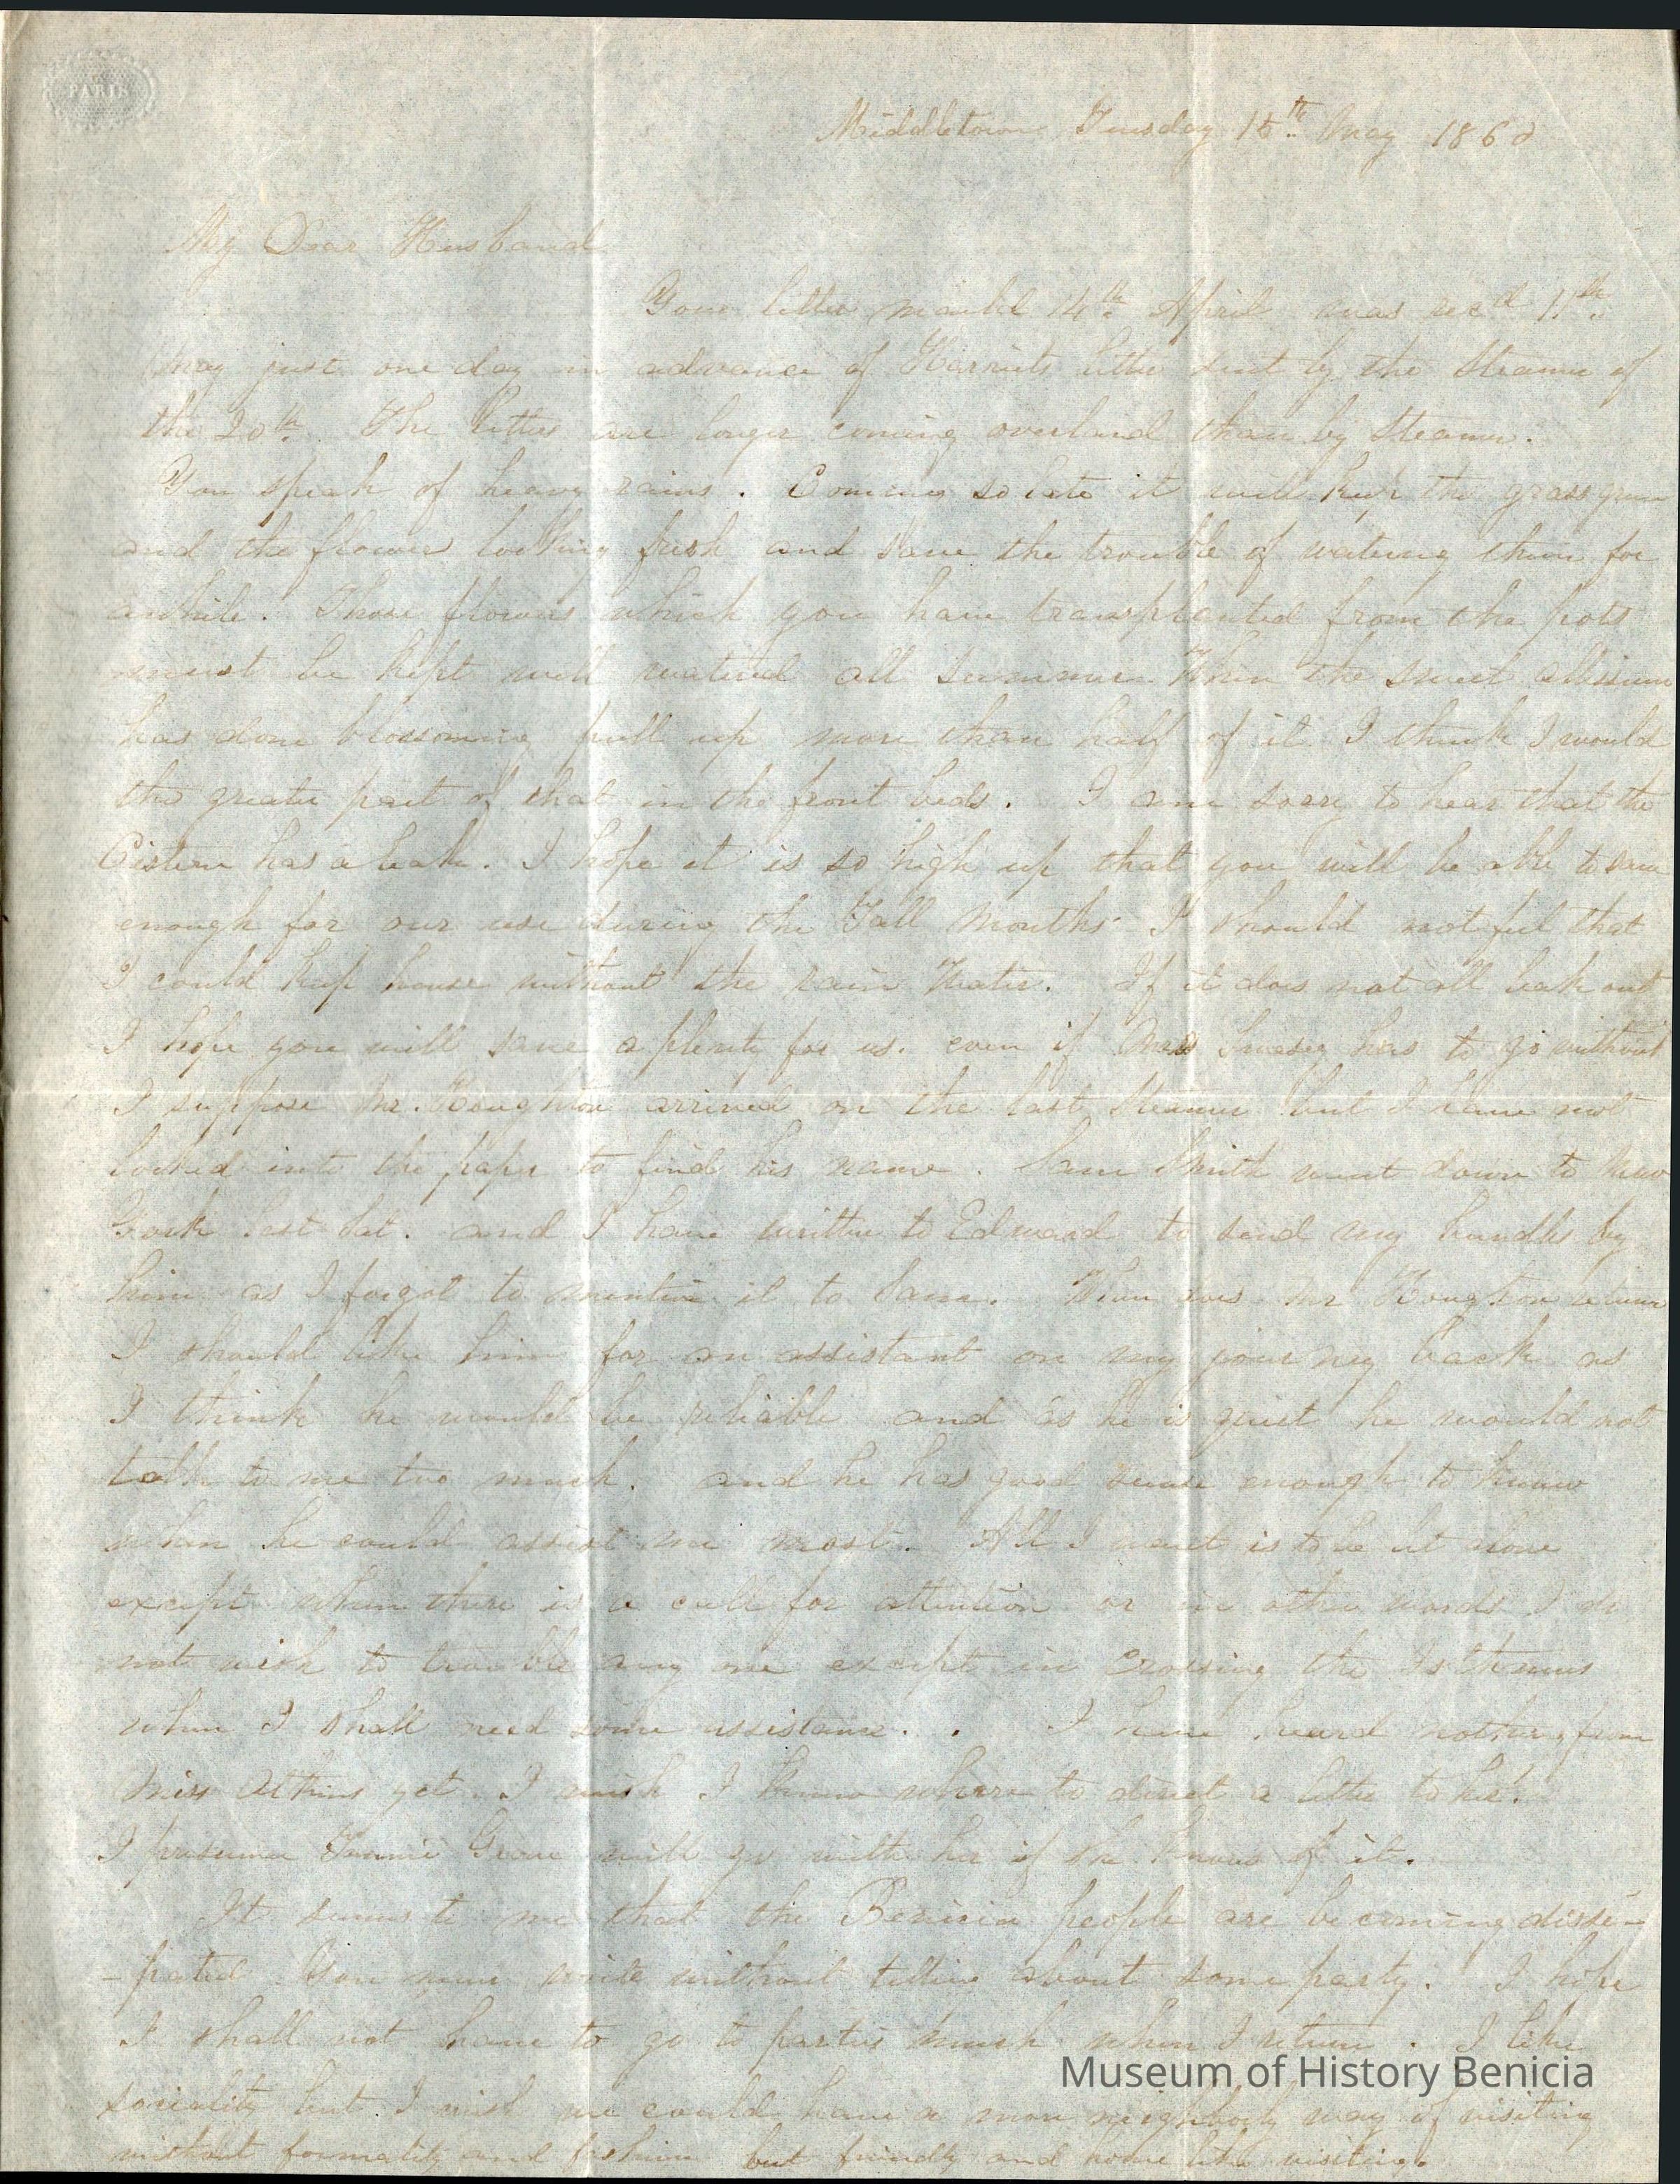 PARIS
Middletown Tuesday 15th May 1860
My Dear Husband
Your letter mailed 14th April was recd 11th
May just one day in advance of Harriets letter sent by the Steamer of
the 20th. The letters are longer coming overland than by Steamer.
You speak of heavy rains. Coming so late it will keep the grass green
and the flowers looking fresh and save the trouble of watering them for
awhile. Those flowers which you have transplanted from the pots
must be kept well watered all summer. When the sweet allissum
has done blossoming pull up more than half of it I think I would
the greater part of that in the front beds. I am sorry to hear that the
Cistern has a leak. I hope it is so high up that you will be able to save
enough for our use during the Fall months I should not feel that
I could keep house without the rain Water. If it does not all leak out
I hope you will save a plenty for us. even if Mrs has to go without
I suppose Mr. Houghton arrived on the last Steamer but I have not
looked into the paper to find his name. Sam Smith went down to New
York last Sat. and I have written to Edward to send my bundle by
him as I forgot to mention it to Sam. When does Mr Houghton return
I should like him for an assistant on my journey back as
I think he would be reliable and as he is quiet he would not
talk to me too much. and he has good sense enough to know
when he could assist me most. All I want is to be let alone
except when there is a call for attention or in other words I do
not wish to trouble any one except in crossing the Isthmus
when I shall need some assistance. . I have heard nothing from
Miss Atkins yet. I wish I knew where to direct a letter to her.
I presume Fannie will go with her if she knows of it.
It seems to me that the Benicia people are becoming disse-
-pated You never write without telling about some party. I hope
I shall not have to go to parties much when I return. I like
sociality but I wish we could have a more neighborly way of visiting
without formality and fashion but friendly and home like visiting.
Museum of History Benicia